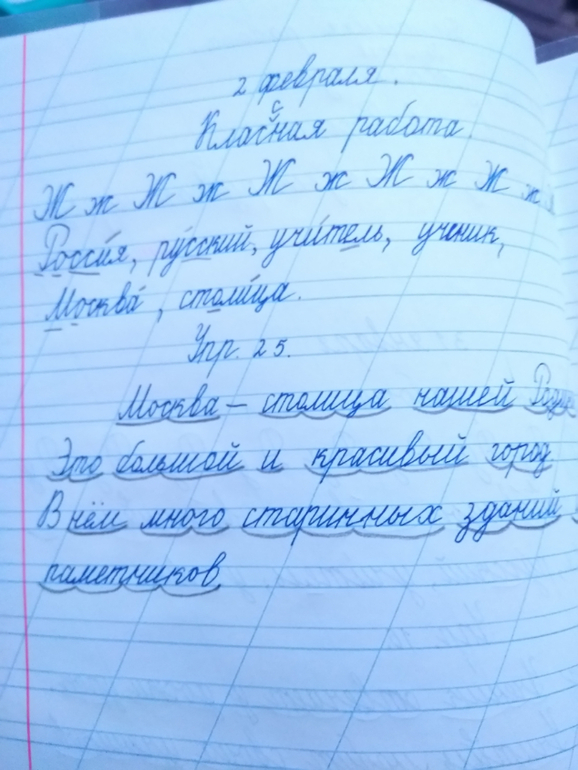 2 февраля.
Классная работа
Ж ж Ж ж Ж ж Ж ж Ж ж
Россия, русский, учитель, ученик,
Москва, столица.
Упр. 25.
Москва – столица нашей
Это большой и красивый город
В нём много старинных зданий
паметников.